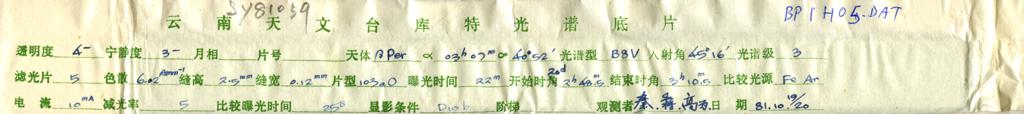 SY81059
BP1H05.DAT
云南天文台库特光谱底片
透明度 4- 宁静度 3- 月相 片号 天体 βPer α 03h07m δ 40°52′ 光谱型 B8V 入射角 45°16′ 光谱级 3
滤光片 5 色散 6.02 Åmm-1 缝高 2.5mm 缝宽 0.12mm 片型 103aO 曝光时间 22m 开始时角 20d 2h48.5m 结束时角 3h10.5m 比较光源 Fe Ar
电流 10mA 减光率 5 比较曝光时间 25s 显影条件 D19 阶梯 观测者 日期 81.10.19/20